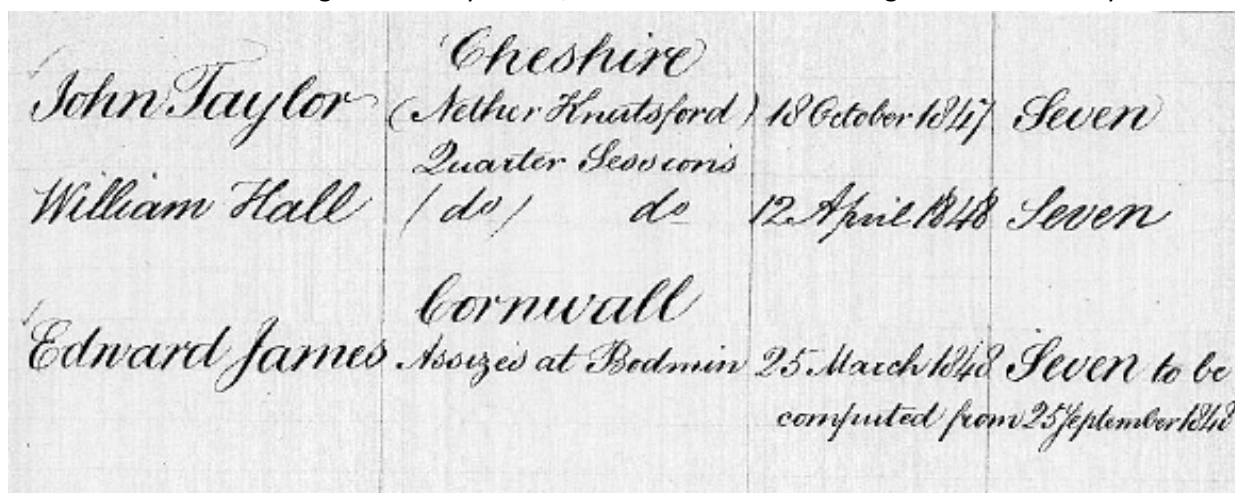 Cheshire
John Taylor (Nether Knutsford) 18 October 1847 Seven
Quarter Sessions
William Hall (do) do 12 April 1848 Seven
Cornwall
Edward James Assizes at Bodmin 25 March 1848 Seven to be
computed from 25 September 1848